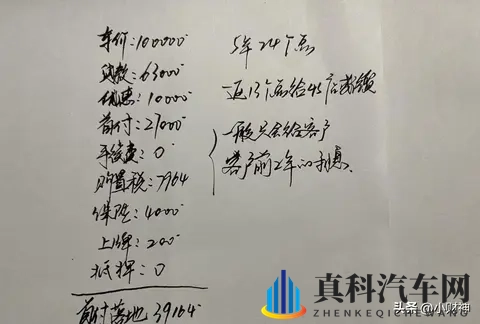 车价:100000
贷款:63000
优惠:10000
首付:27000
手续费:0
购置税:7964
保险:4000
上牌:200
抵押:0
首付落地 39164
5年24个点
返13个点给4S店
一般只会给客户
客户前2年的利息
真科汽车网
ZHENKEQICHEWANG
头条 @小财神